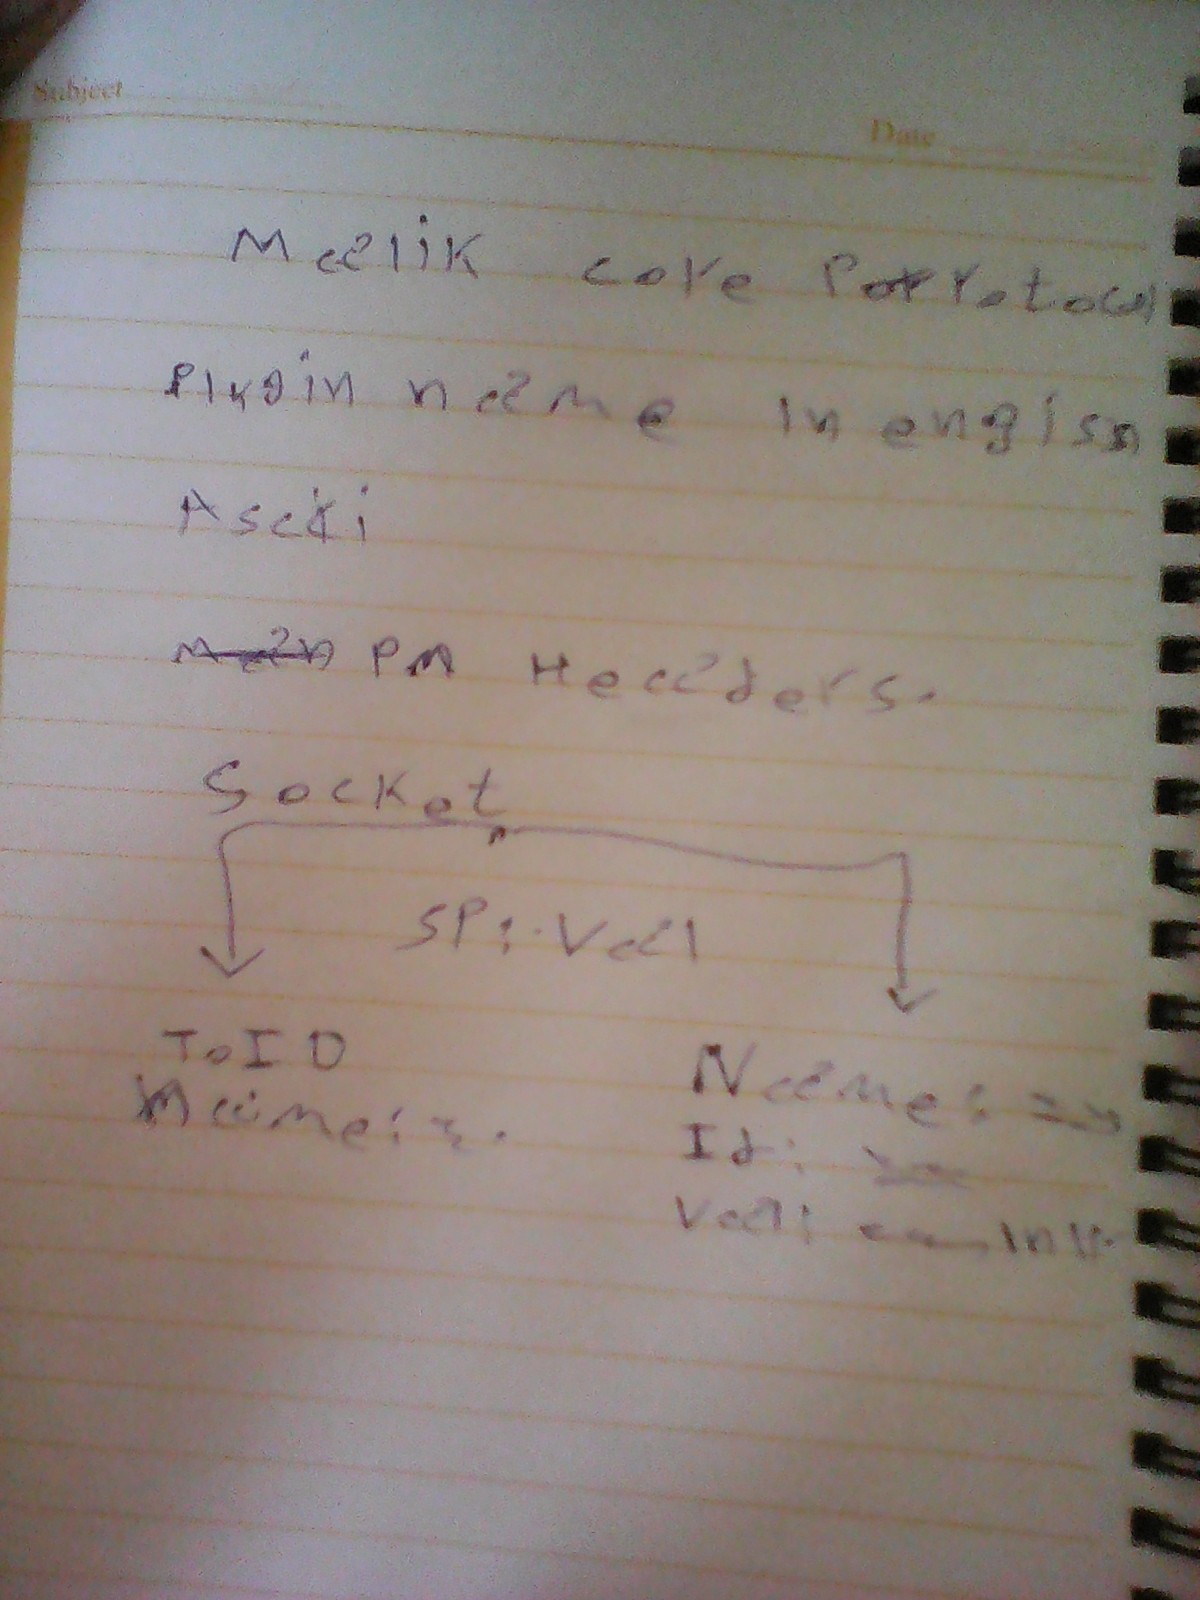 Subject
Date
Malik core Protocol
Plugin name in engish
Ascki
PM Headers.
Socket
SP: Val
To ID
Name:
Name:
Id:
Val: